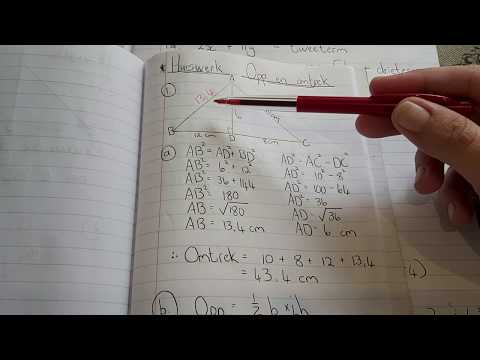 19 2x + 11y = tweeterm
* Huiswerk Opp en omtrek
①
A
13,4
6
B 12 cm D 8 cm C
ⓐ AB² = AD² + BD²
AB² = 6² + 12²
AB² = 36 + 144
AB² = 180
AB = √180
AB = 13,4 cm
AD² = AC² - DC²
AD² = 10² - 8²
AD² = 100 - 64
AD² = 36
AD = √36
AD = 6 cm
∴ Omtrek = 10 + 8 + 12 + 13,4
= 43,4 cm
ⓑ Opp = ½ b × ⊥h
-4)